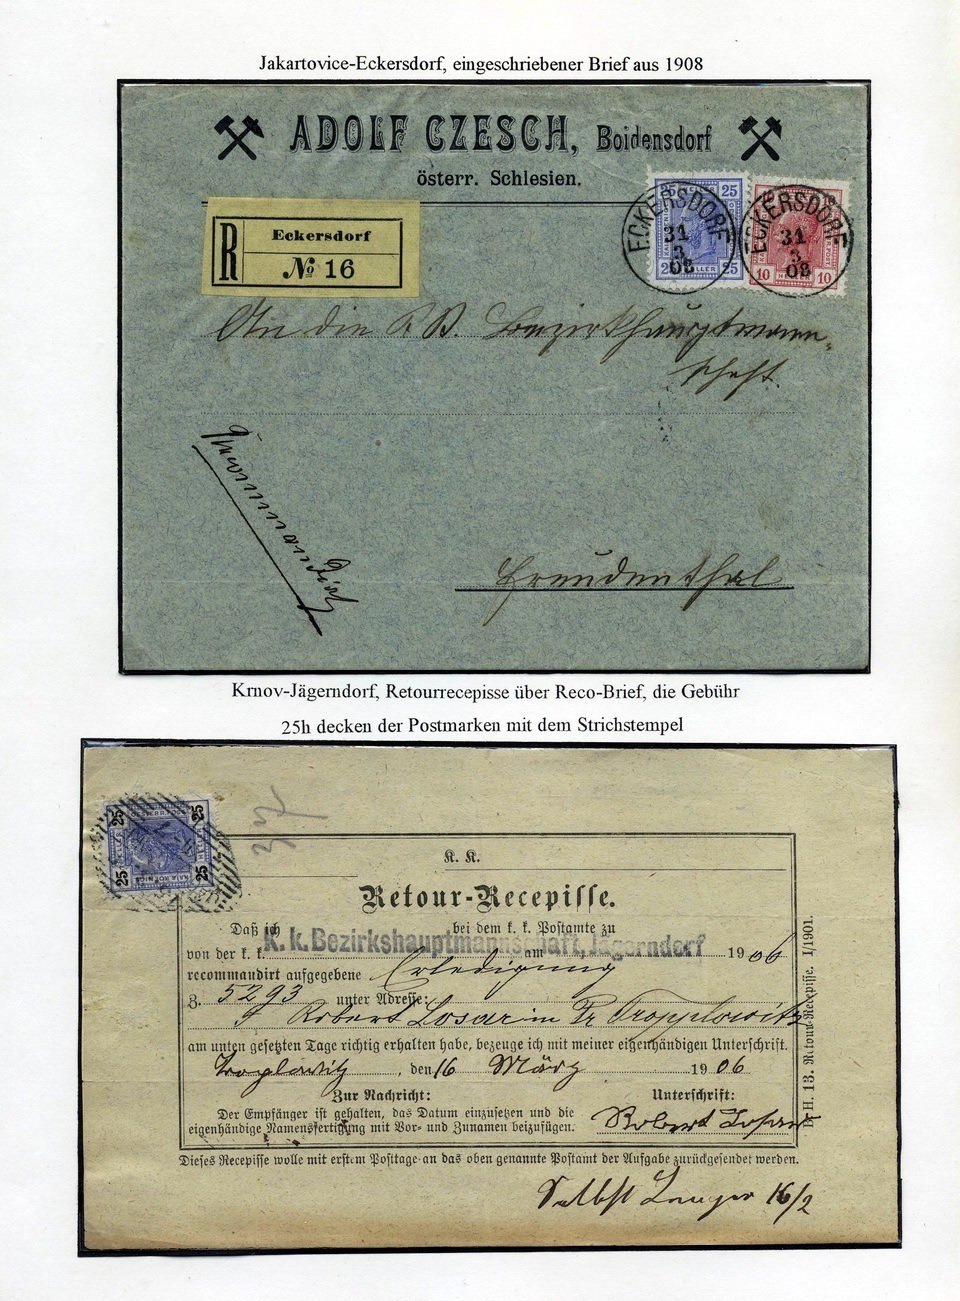 Jakartovice-Eckersdorf, eingeschriebener Brief aus 1908
ADOLF CZESCH, Boidensdorf
österr. Schlesien.
25 25
25 HELLER 25
10 HELLER 10
ECKERSDORF
31
3
08
ECKERSDORF
31
3
08
R
Eckersdorf
No 16
An die k k B. Bezirkshauptmann-
schaft.
Freudenthal
Krnov-Jägerndorf, Retourrecepisse über Reco-Brief, die Gebühr
25h decken der Postmarken mit dem Strichstempel
25 25
25 25
K. K.
Retour-Recepisse.
Daß ich bei dem k. k. Postamte zu
K. k. Bezirkshauptmannschaft, Jägerndorf
von der k. k. am 1906
recommandirt aufgegebene Erledigung
Z. 5293 unter Adresse:
Robert Losar in Gr Tropplowitz
am unten gesetzten Tage richtig erhalten habe, bezeuge ich mit meiner eigenhändigen Unterschrift.
Troplowitz, den 16 März 1906
Zur Nachricht: Unterschrift:
Der Empfänger ist gehalten, das Datum einzusetzen und die
eigenhändige Namensfertigung mit Vor- und Zunamen beizufügen. Robert Losar
Dieses Recepisse wolle mit erstem Posttage an das oben genannte Postamt der Aufgabe zurückgesendet werden.
D. H. 13. Retour-Recepisse. I/1901.
Selbst 16/2